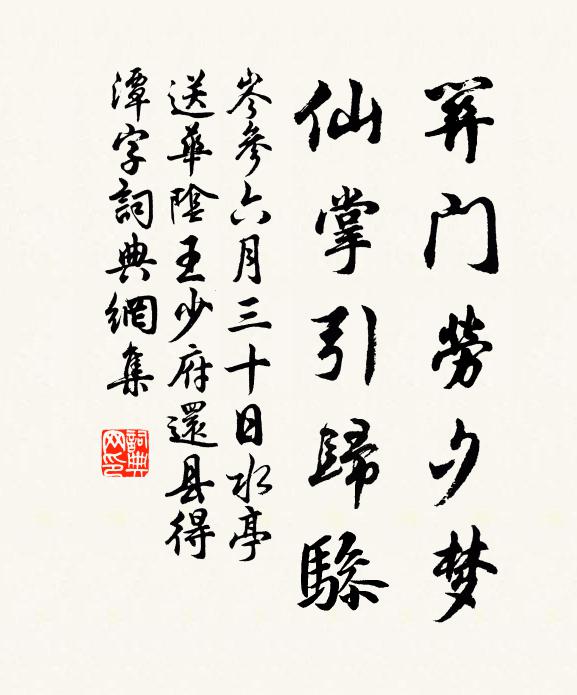 关门勞夕梦
仙掌引歸驂
岑參六月三十日水亭
送華陰王少府還县得
潭字詞典網集
詞典网印